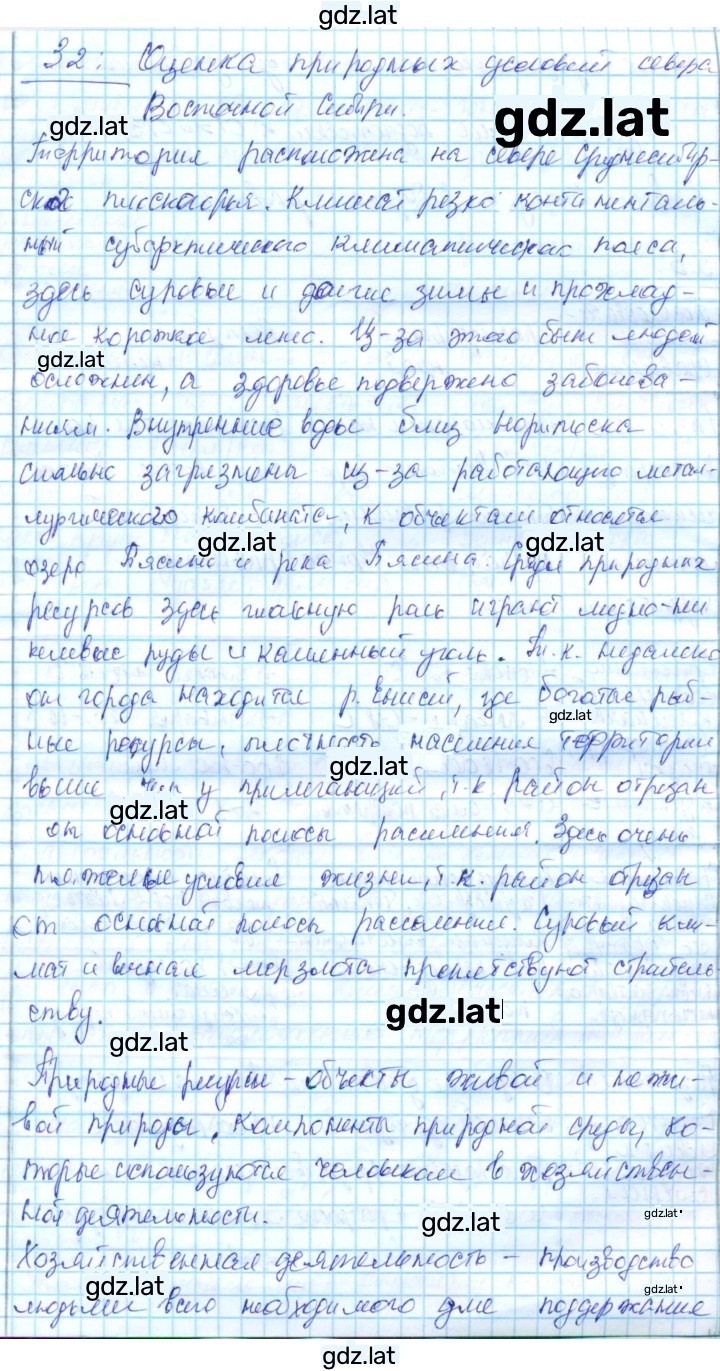 gdz.lat
32: Оценка природных условий севера
Восточной Сибири.
gdz.lat
gdz.lat
Территория расположена на севере Среднесибир-
ского плоскогорья. Климат резко континенталь-
ный субарктического климатического пояса,
здесь суровые и долгие зимы и прохлад-
ное короткое лето. Из-за этого быт людей
gdz.lat
осложнён, а здоровье подвержено заболева-
ниям. Внутренние воды близ Норильска
сильно загрязнены из-за работающего метал-
лургического комбината, к объектам относятся
gdz.lat
gdz.lat
озеро Пясино и река Пясина. Среди природных
ресурсов здесь главную роль играют медно-ни
келевые руды и каменный уголь. Т.к. недалеко
от города находится р. Енисей, где богатые рыб-
gdz.lat
ные ресурсы, плотность населения территории
gdz.lat
выше чем у прилегающий, т.к. район отрезан
gdz.lat
от основной полосы расселения. Здесь очень
тяжелые условия жизни, т.к. район отрезан
от основной полосы расселения. Суровый кли-
мат и вечная мерзлота препятствуют строитель-
ству.
gdz.lat
gdz.lat
Природные ресурсы - объекты живой и нежи-
вой природы, компоненты природной среды, ко-
торые используются человеком в хозяйствен-
ной деятельности.
gdz.lat
gdz.lat
Хозяйственная деятельность - производство
gdz.lat
gdz.lat
людьми всего необходимого для поддержание
gdz.lat